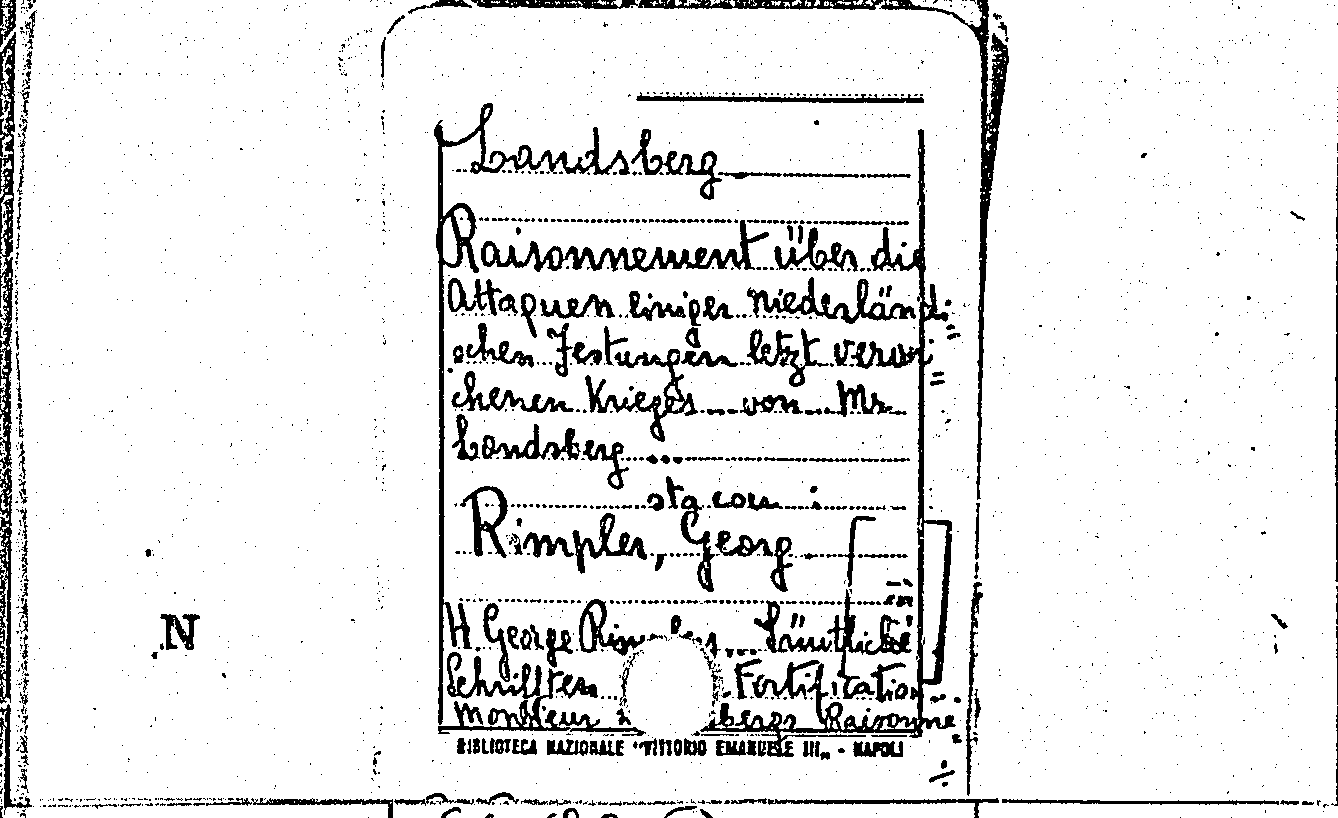 Landsberg.
Raisonnement über die
Attaquen einiger niederländi=
schen Festungen letzt verwi=
chenen Krieges ... von ... Mr.
Landsberg ...
sta con :
Rimpler, Georg.
H. George ... Sämtliche
Schrifften Fortification ...
Monsieur Raisonne=
BIBLIOTECA NAZIONALE "VITTORIO EMANUELE III„ - NAPOLI
N